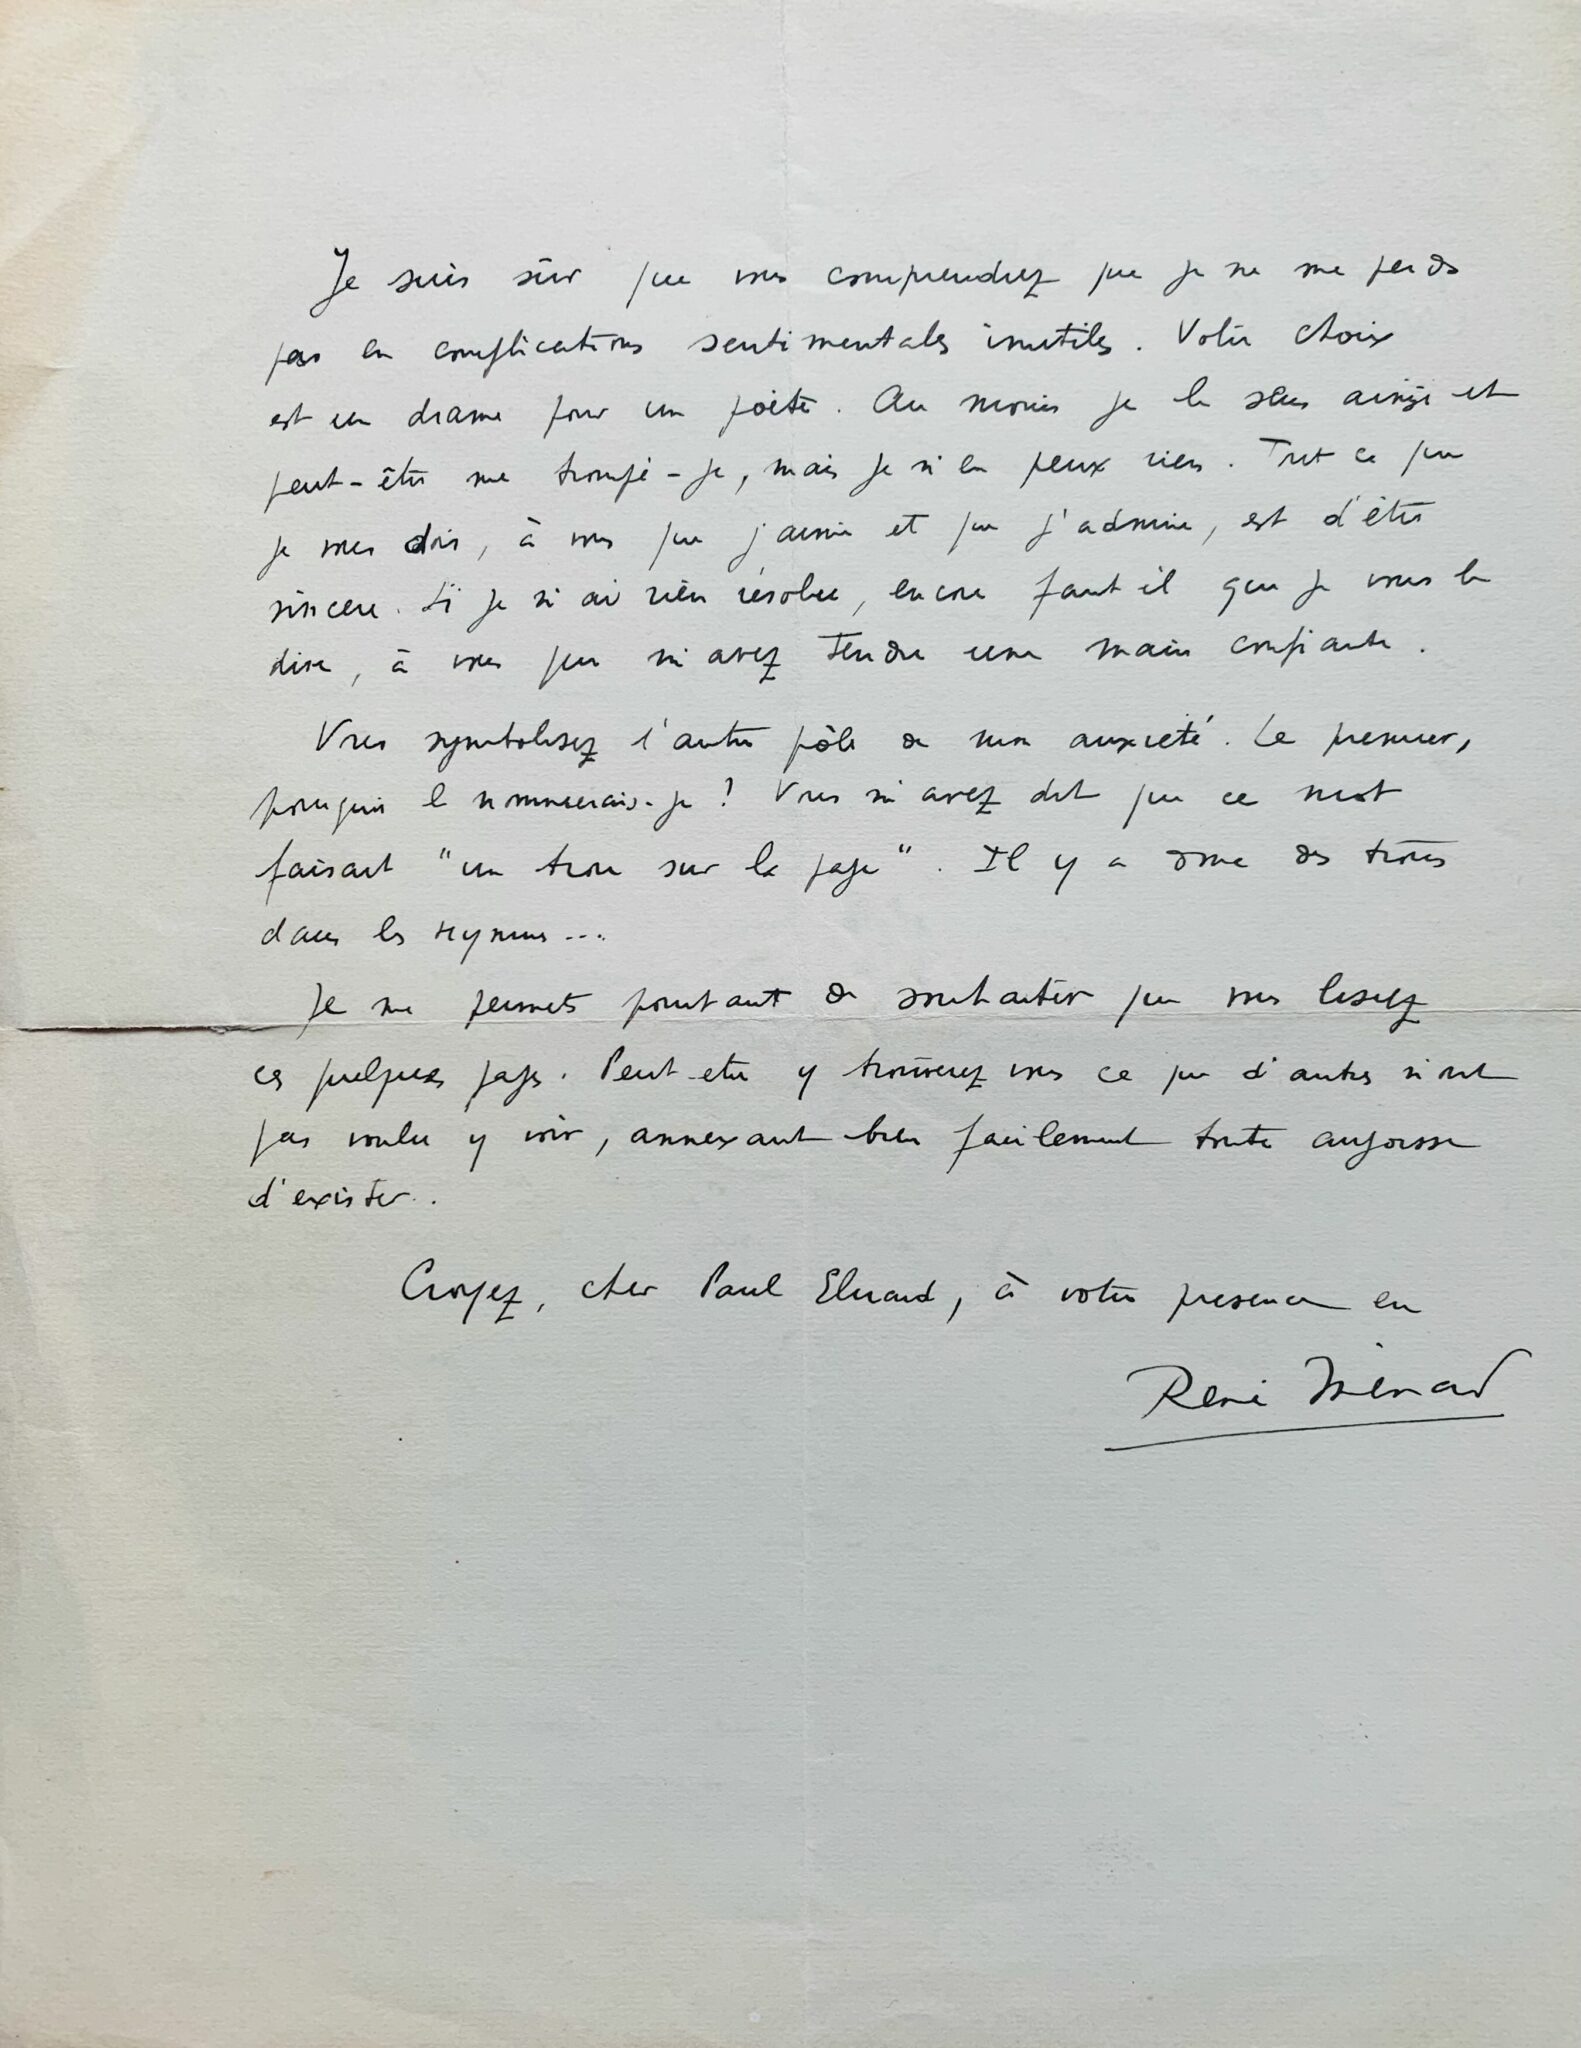 Je suis sûr que vous comprendrez que je ne me perds
pas en complications sentimentales inutiles. Votre choix
est un drame pour un poète. Au moins je le sens ainsi et
peut-être me trompé-je, mais je n'en peux rien. Tout ce que
je vous dois, à vous que j'aime et que j'admire, est d'être
sincère. Si je n'ai rien résolu, encore faut il que je vous le
dise, à vous qui m'avez tendu une main confiante.
Vous symbolisez l'autre pôle de mon anxiété. Le premier,
pourquoi le nommerais-je ? Vous m'avez dit que ce mot
faisait "un trou sur la page". Il y a donc des trous
dans les hymnes...
Je me permets pourtant de souhaiter que vous lisiez
ces quelques pages. Peut-être y trouverez vous ce que d'autres n'ont
pas voulu y voir, annexant bien facilement toute angoisse
d'exister..
Croyez, cher Paul Eluard, à votre présence en
René Ménard